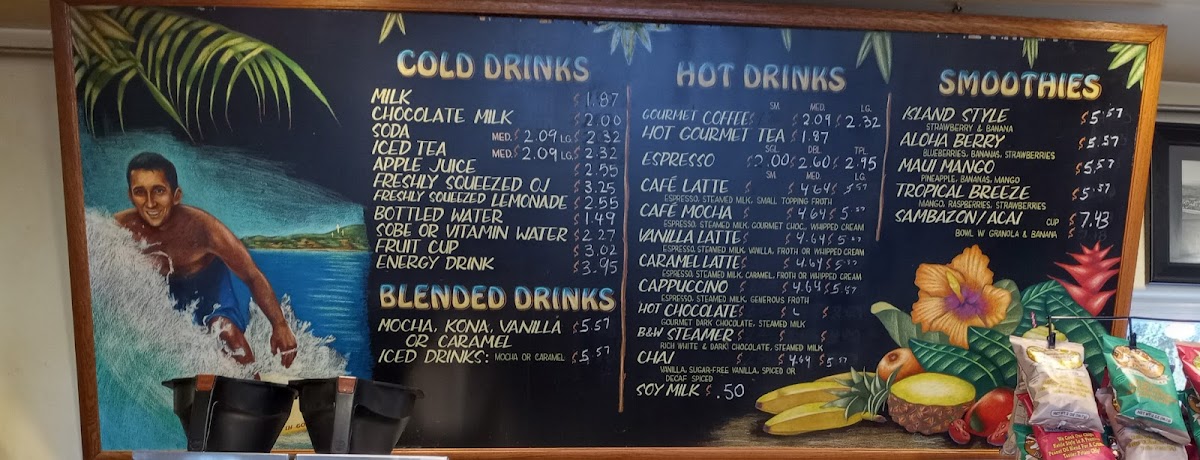 COLD DRINKS
MILK $1.87
CHOCOLATE MILK $2.00
SODA MED. $2.09 LG. $2.32
ICED TEA MED. $2.09 LG. $2.32
APPLE JUICE $2.55
FRESHLY SQUEEZED OJ $3.25
FRESHLY SQUEEZED LEMONADE $2.55
BOTTLED WATER $1.49
SOBE OR VITAMIN WATER $2.27
FRUIT CUP $3.02
ENERGY DRINK $3.95
BLENDED DRINKS
MOCHA, KONA, VANILLA $5.57
OR CARAMEL
ICED DRINKS: MOCHA OR CARAMEL $5.57
HOT DRINKS
SM. MED. LG.
GOURMET COFFEE $ $2.09 $2.32
HOT GOURMET TEA $1.87
SGL DBL TPL
ESPRESSO $2.00 $2.60 $2.95
SM. MED. LG
CAFÉ LATTE $ $4.64 $5.57
ESPRESSO, STEAMED MILK, SMALL TOPPING FROTH
CAFÉ MOCHA $ $4.64 $5.57
ESPRESSO, STEAMED MILK, GOURMET CHOC., WHIPPED CREAM
VANILLA LATTE $ $4.64 $5.57
ESPRESSO, STEAMED MILK, VANILLA, FROTH OR WHIPPED CREAM
CARAMEL LATTE $ $4.64 $5.57
ESPRESSO, STEAMED MILK, CARAMEL, FROTH OR WHIPPED CREAM
CAPPUCCINO $ $4.64 $5.57
ESPRESSO, STEAMED MILK, GENEROUS FROTH
HOT CHOCOLATE $ $ $
GOURMET DARK CHOCOLATE, STEAMED MILK
B&W STEAMER $ $ $
RICH WHITE & DARK CHOCOLATE, STEAMED MILK
CHAI $ $4.64 $5.57
VANILLA, SUGAR-FREE VANILLA, SPICED OR
DECAF SPICED
SOY MILK $.50
SMOOTHIES
ISLAND STYLE $5.57
STRAWBERRY & BANANA
ALOHA BERRY $5.57
BLUEBERRIES, BANANAS, STRAWBERRIES
MAUI MANGO $5.57
PINEAPPLE, BANANAS, MANGO
TROPICAL BREEZE $5.57
MANGO, RASPBERRIES, STRAWBERRIES
SAMBAZON/ACAI CUP $7.43
BOWL W/ GRANOLA & BANANA $